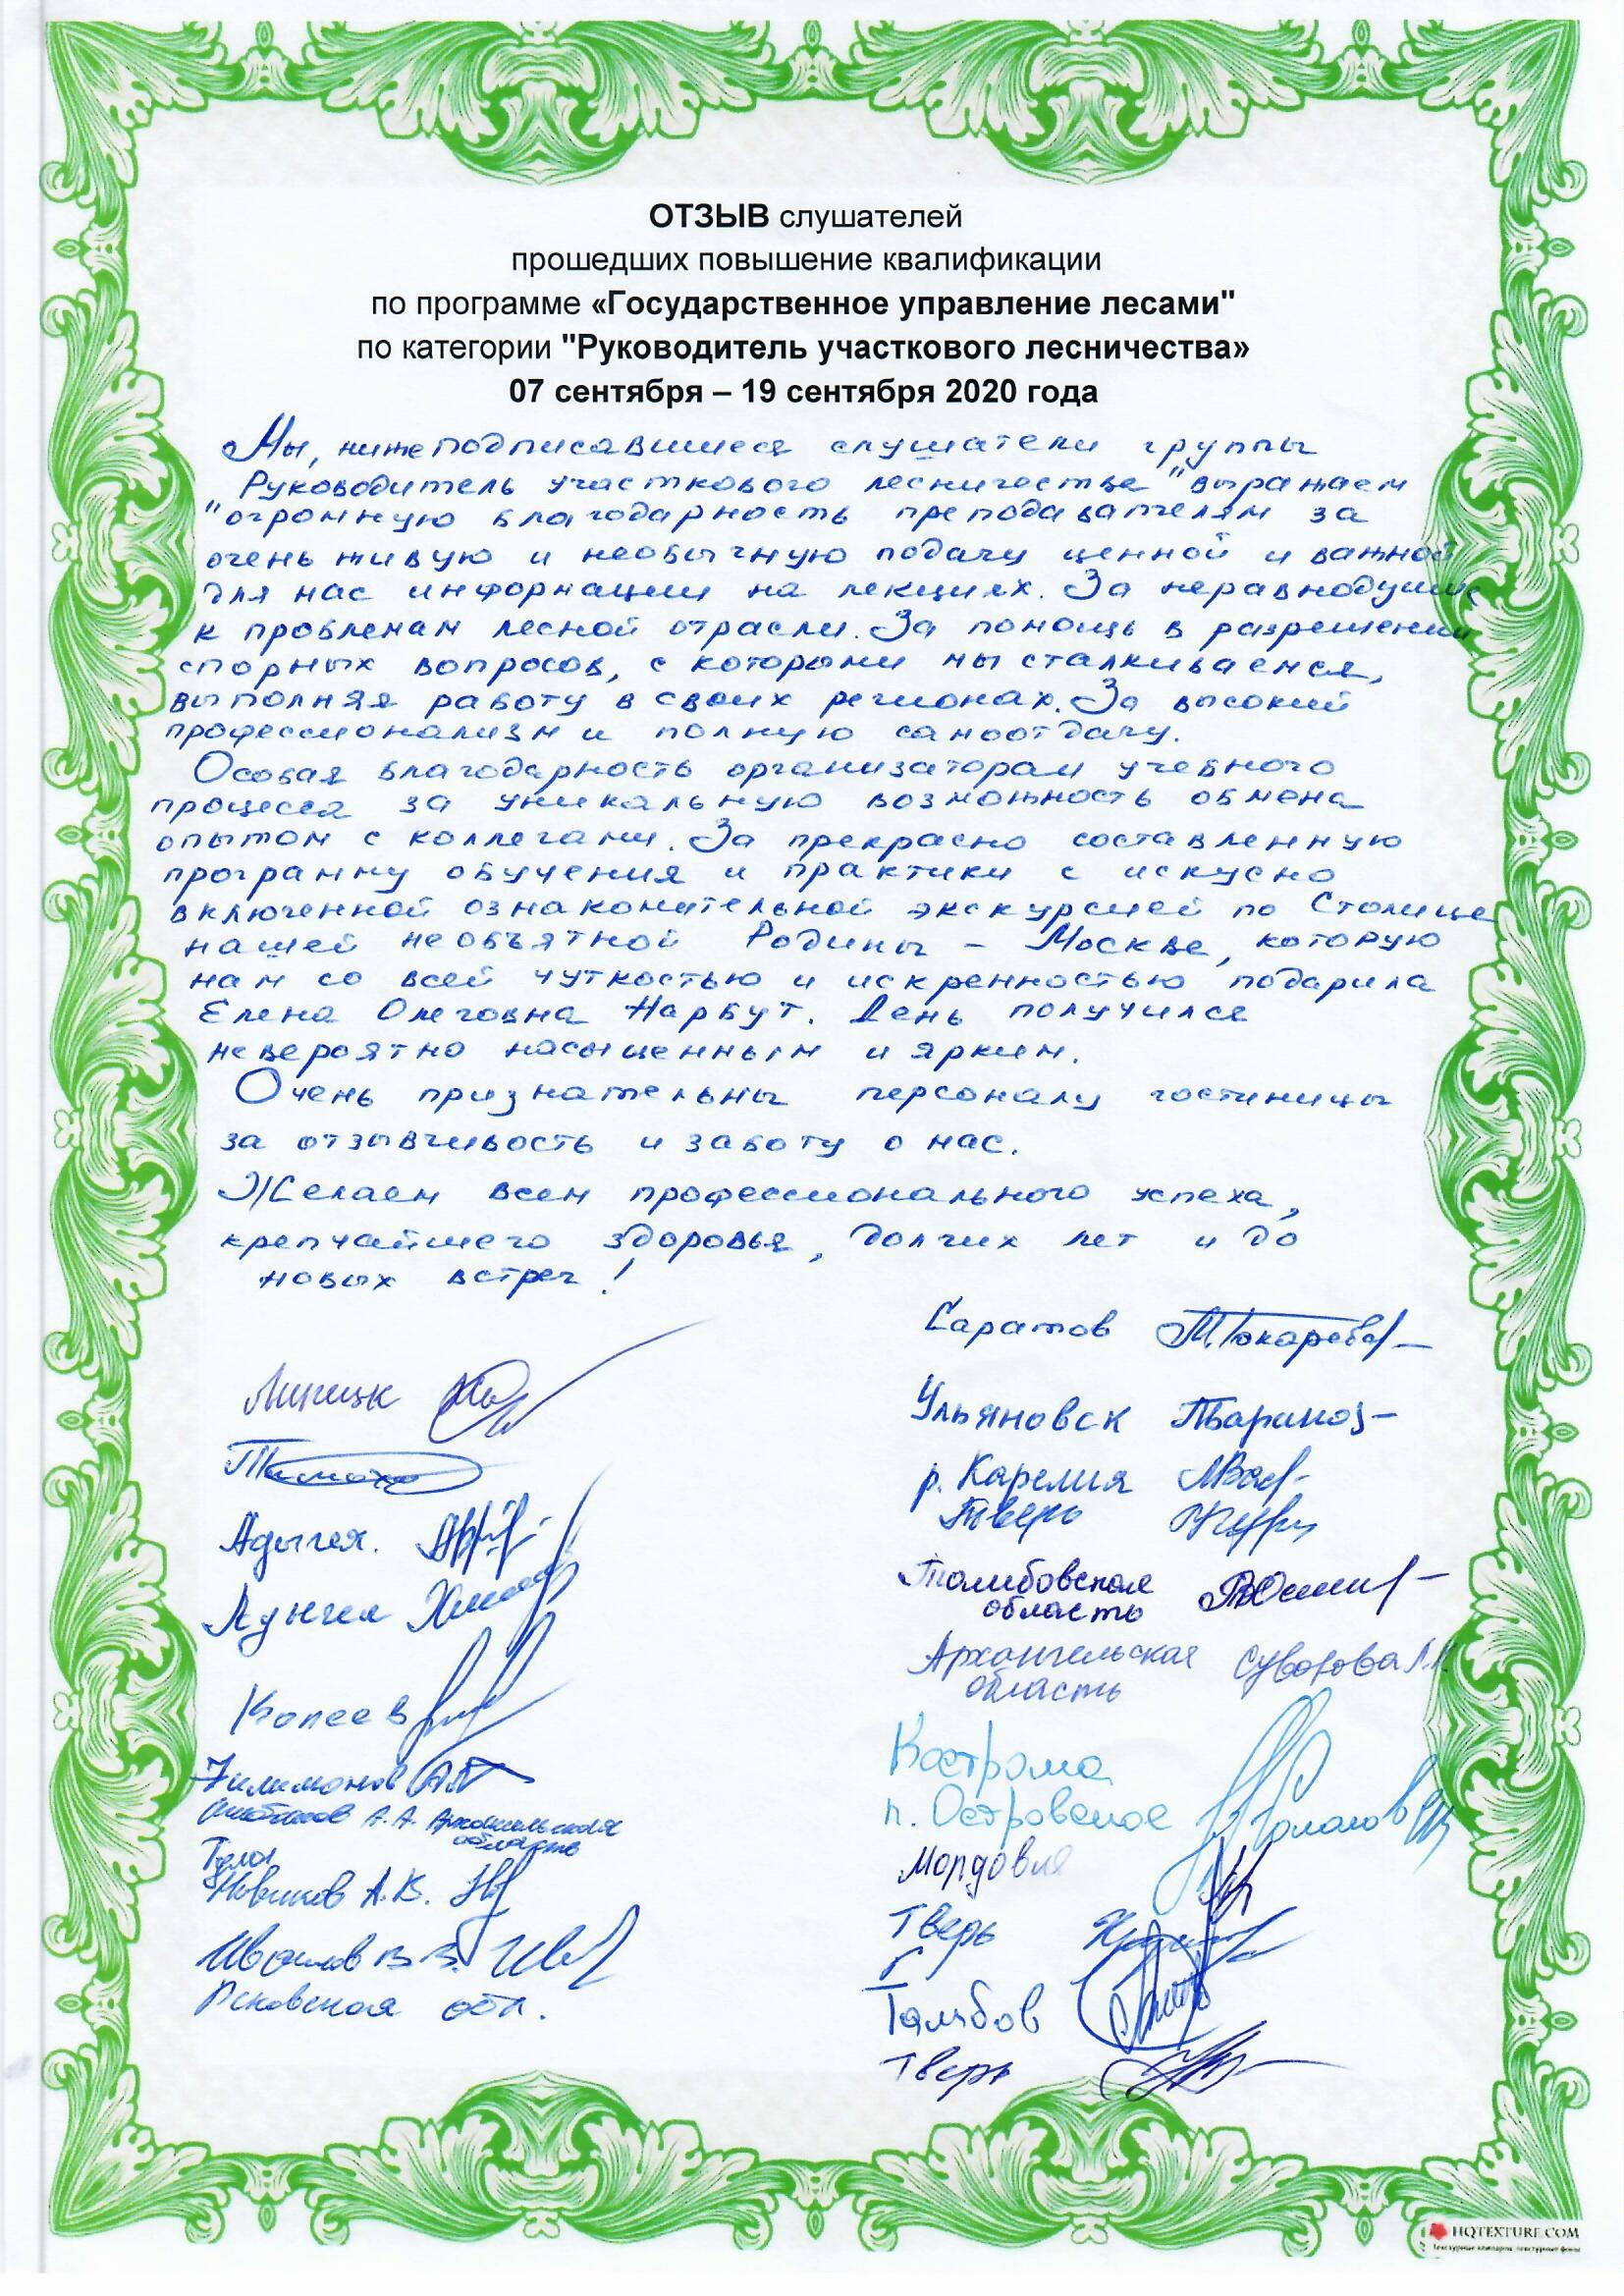 ОТЗЫВ слушателей
прошедших повышение квалификации
по программе «Государственное управление лесами"
по категории "Руководитель участкового лесничества»
07 сентября – 19 сентября 2020 года
Мы, нижеподписавшиеся слушатели группы
Руководитель участкового лесничества" выражаем
"огромную благодарность преподавателям за
очень живую и необычную подачу ценной и важной
для нас информации на лекциях. За неравнодушие
к проблемам лесной отрасли. За помощь в разрешении
спорных вопросов, с которыми мы сталкиваемся,
выполняя работу в своих регионах. За высокий
профессионализм и полную самоотдачу.
Особая благодарность организаторам учебного
процесса за уникальную возможность обмена
опытом с коллегами. За прекрасно составленную
программу обучения и практики с искусно
включенной ознакомительной экскурсией по Столице
нашей необъятной Родины – Москве, которую
нам со всей чуткостью и искренностью подарила
Елена Олеговна Нарбут. День получился
невероятно насыщенным и ярким.
Очень признательны персоналу гостиницы
за отзывчивость и заботу о нас.
Желаем всем профессионального успеха,
крепчайшего здоровья, долгих лет и до
новых встреч!
Саратов М.Токарева
Липецк
Ульяновск
р. Карелия
Тверь
Адыгея.
Тамбовская
область
Адыгея
Архангельская Суворова
область
Копеев
Кострома
п. Островское
Филимонов
А.А. Архангельская
область
Мордовия
Новиков А.В.
Тверь
Иванов В.В.
Псковская обл.
Тамбов
Тверь
HQTEXTURE.COM